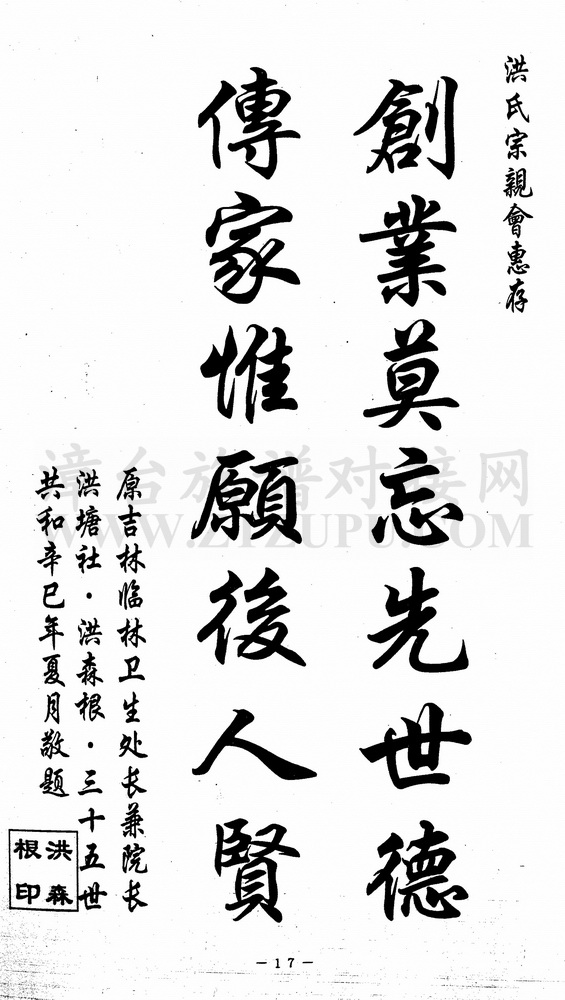 洪氏宗親會惠存
創業莫忘先世德
傳家惟願後人賢
原吉林临林卫生处长兼院长
洪塘社·洪森根·三十五世
共和辛巳年夏月敬题
洪森
根印
漳台族谱对接网
WWW.ZTZUPU.COM
－17－